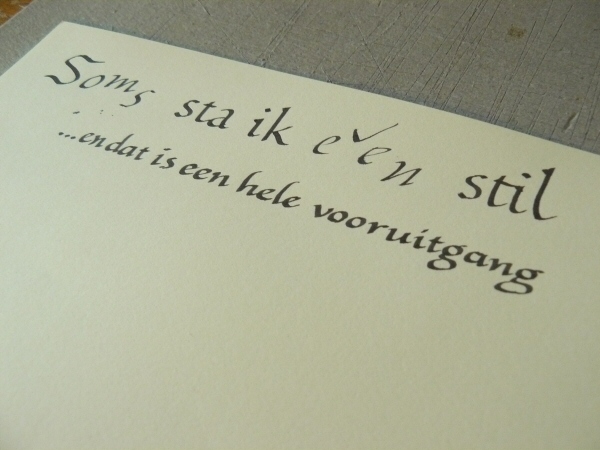 Soms sta ik even stil
...en dat is een hele vooruitgang